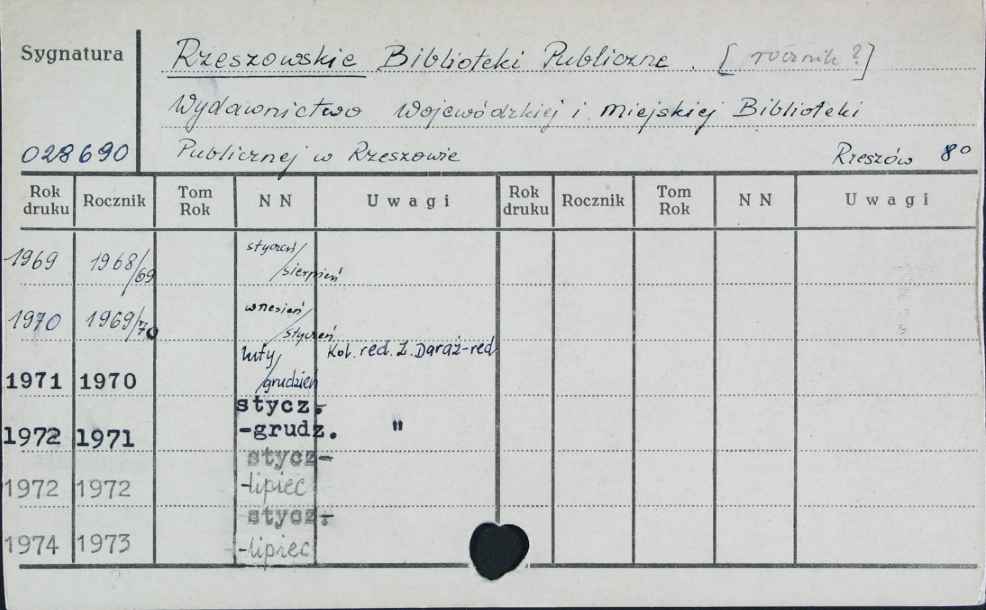 Sygnatura
Rzeszowskie Biblioteki Publiczne. [rocznik?]
Wydawnictwo Wojewódzkiej i Miejskiej Biblioteki
028690 Publicznej w Rzeszowie Rzeszów 8°
Rok druku Rocznik Tom Rok NN Uwagi Rok druku Rocznik Tom Rok NN Uwagi
1969 1968/69 styczeń/sierpień
1970 1969/70 wrzesień/styczeń
1971 1970 luty/grudzień Kol. red. Z. Daraż-red
1972 1971 stycz.-grudz. "
1972 1972 stycz--lipiec
1974 1973 stycz.-lipiec